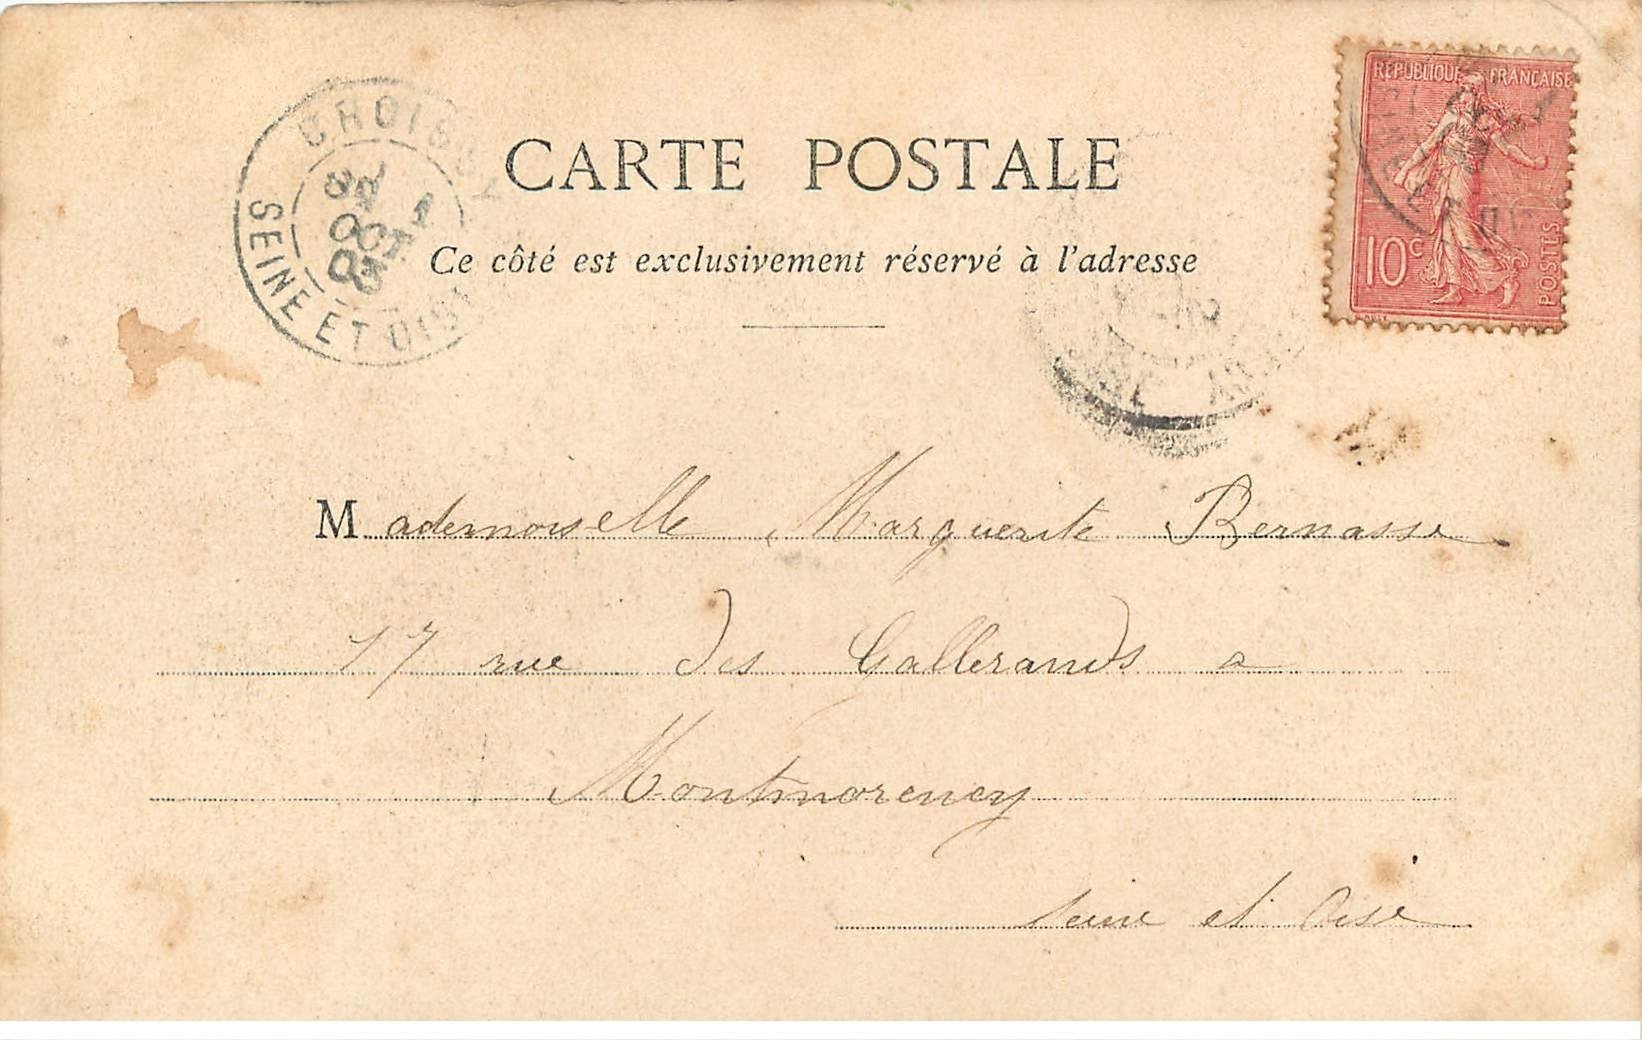 RÉPUBLIQUE FRANÇAISE
10c
POSTES
CROISSY
1
OCT
03
SEINE ET OISE
CARTE POSTALE
Ce côté est exclusivement réservé à l'adresse
Mademoiselle Marguerite Bernasse
17 rue des Gallerands a
Montmorency
Seine et Oise